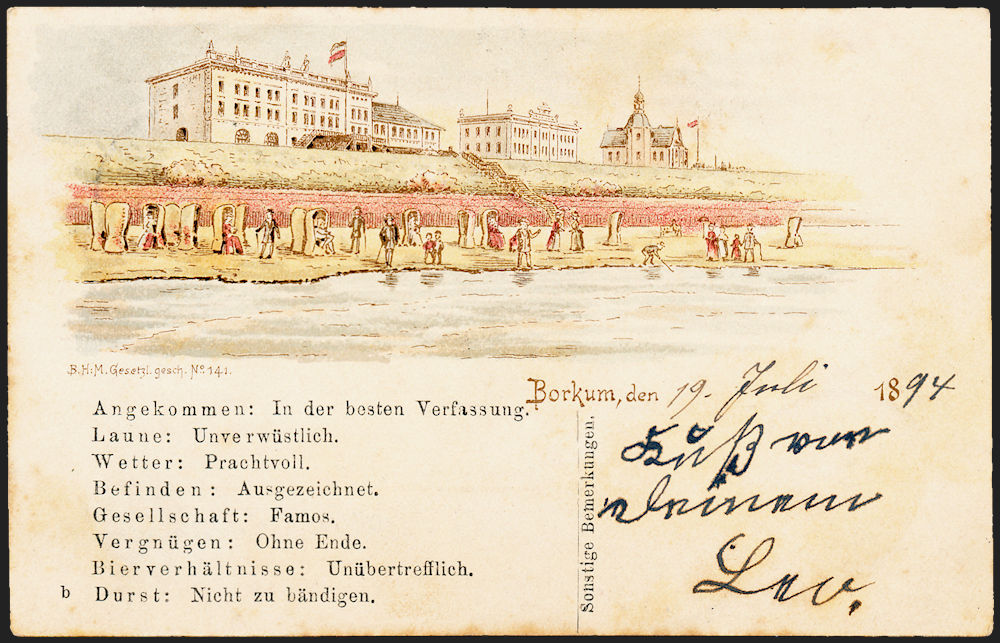 B.H.M. Gesetzl. gesch. No 141.
Borkum, den 19. Juli 1894
Angekommen: In der besten Verfassung.
Laune: Unverwüstlich.
Wetter: Prachtvoll.
Befinden: Ausgezeichnet.
Gesellschaft: Famos.
Vergnügen: Ohne Ende.
Bierverhältnisse: Unübertrefflich.
b Durst: Nicht zu bändigen.
Sonstige Bemerkungen.
Kuß von
Deinem
Leo.